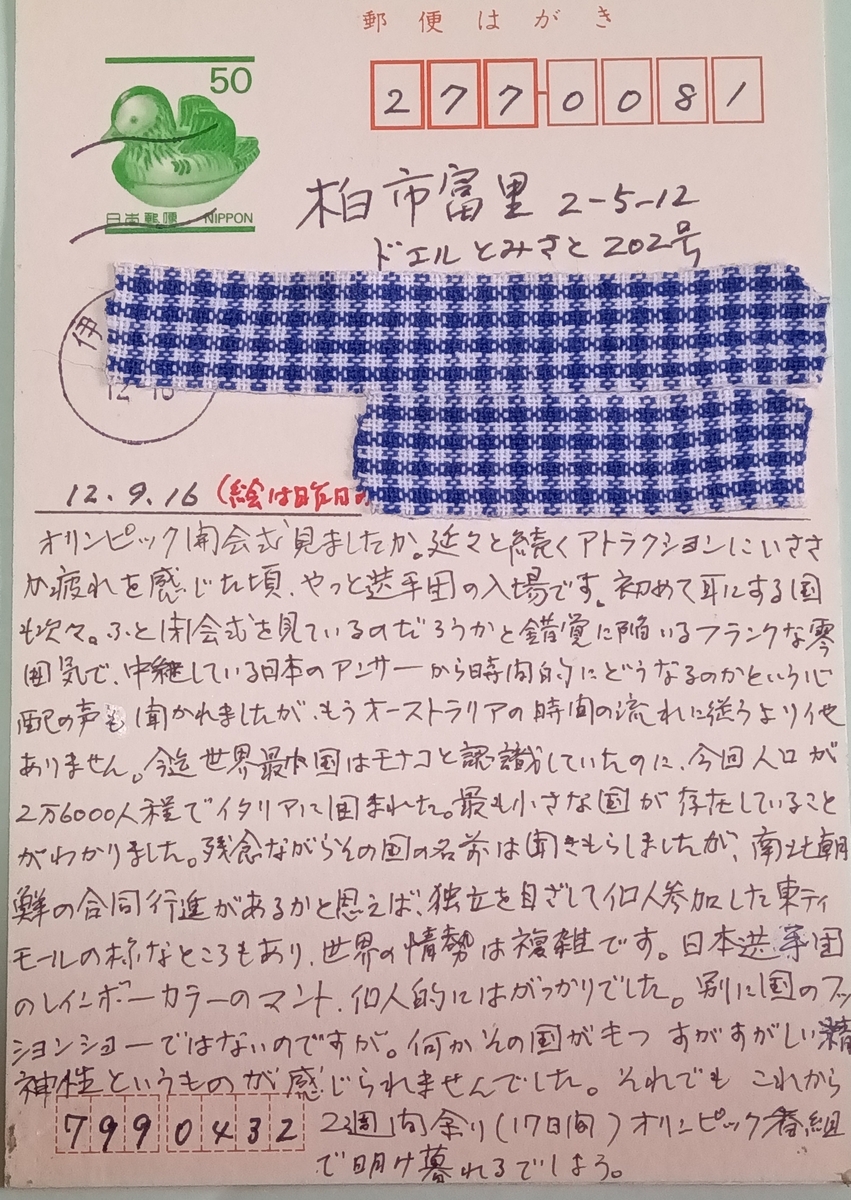 郵便はがき
50
日本郵便 NIPPON
277-0081
柏市富里 2-5-12
ドエルとみさと 202号
伊
12.9.16 (絵は昨日の
オリンピック開会式見ましたか。延々と続くアトラクションにいささ
か疲れを感じた頃、やっと選手団の入場です。初めて耳にする国
も次々。ふと閉会式を見ているのだろうかと錯覚に陥いるフランクな雰
囲気で、中継している日本のアンサーから時間的にどうなるのかという心
配の声も聞かれましたが、もうオーストラリアの時間の流れに従うより他
ありません。今迄世界最小国はモナコと認識していたのに、今回人口が
2万6000人程でイタリアに囲まれた。最も小さな国が存在していること
がわかりました。残念ながらその国の名前は聞きもらしましたが、南北朝
鮮の合同行進があるかと思えば、独立を目ざして個人参加した東ティ
モールの様なところもあり、世界の情勢は複雑です。日本選手団
のレインボーカラーのマント、個人的にはがっかりでした。別に国のファッ
ションショーではないのですが。何かその国がもつ すがすがしい精
神性というものが感じられませんでした。それでも これから
2週間余り(17日間)オリンピック番組
で明け暮れるでしょう。
799 0432